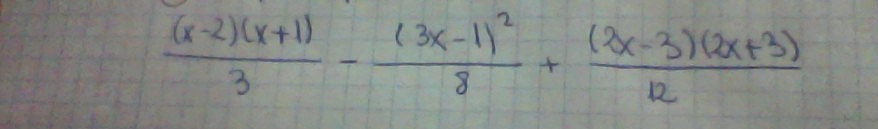 (x-2)(x+1)/3 - (3x-1)²/8 + (2x-3)(2x+3)/12